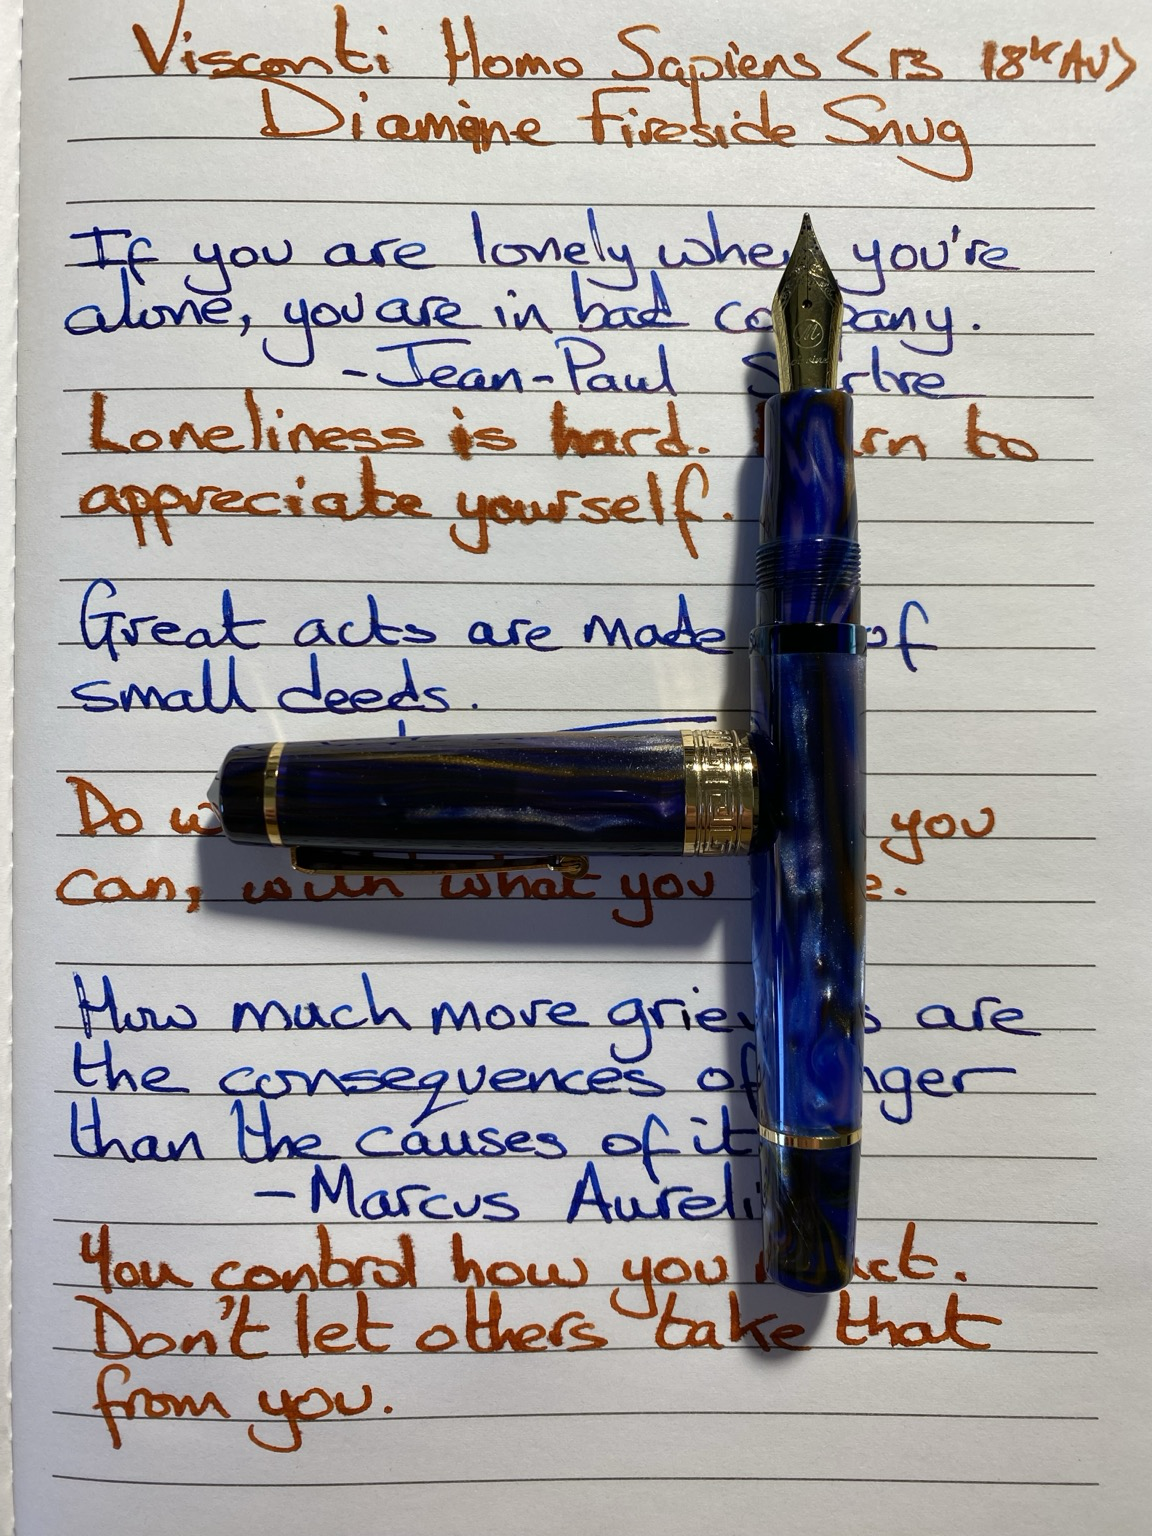 Visconti Homo Sapiens <B 18k AU>
Diamine Fireside Snug
If you are lonely when you're
alone, you are in bad company.
-Jean-Paul Sartre
Loneliness is hard. Learn to
appreciate yourself.
Great acts are made of
small deeds.
Do you
can, with what you
How much more grievous are
the consequences of anger
than the causes of it
-Marcus Aurelius
You control how you react.
Don't let others take that
from you.